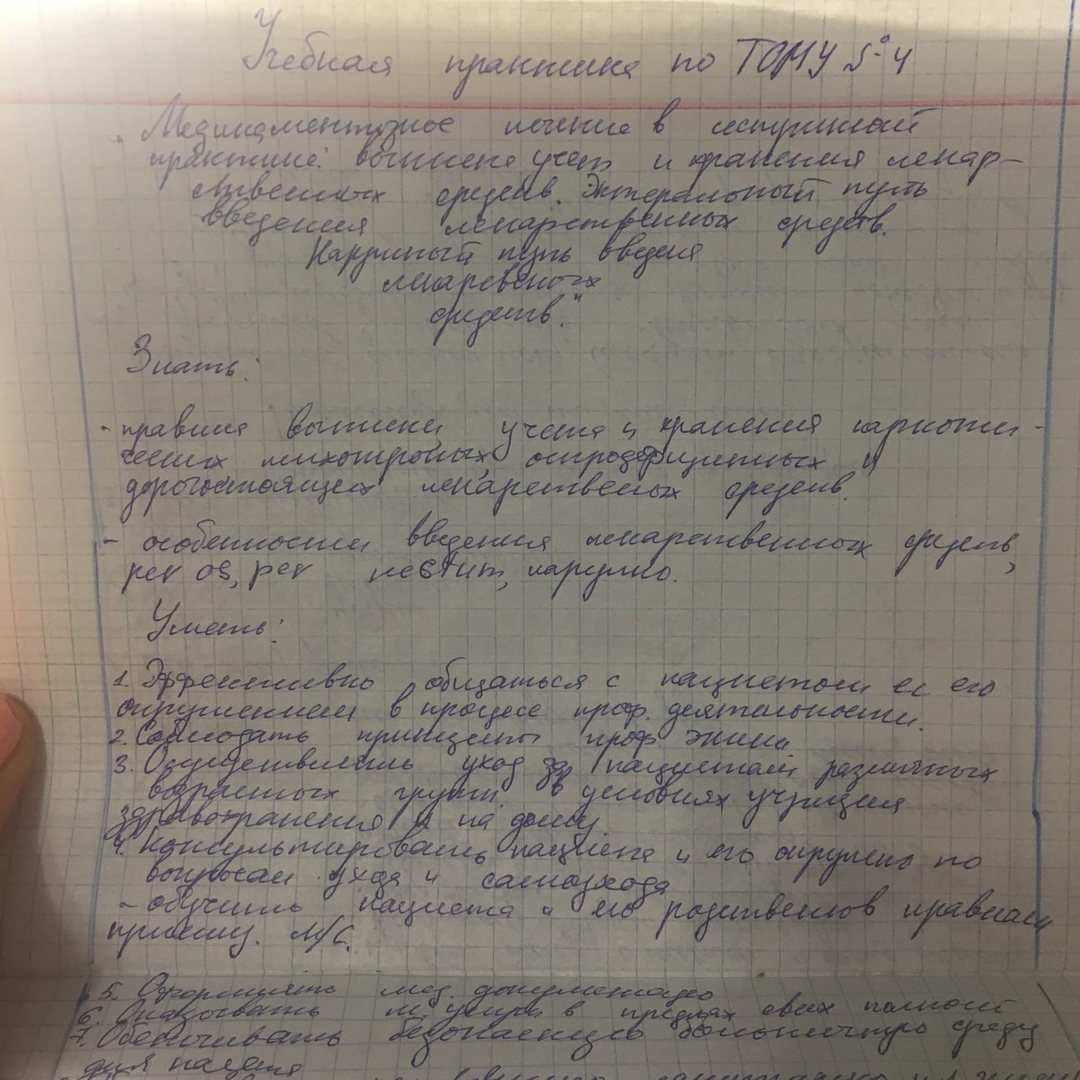 Учебная практика по ТОМУ №4
"Медикаментозное лечение в сестринской
практике: выписка учет и хранения лекар-
ственных средств. Энтеральный путь
введения лекарственных средств.
Наружный путь введеия
лекаревеных
средств."
Знать:
- правила выписки, учета и хранения наркоти-
ческих психотропных, остродефицитных и
дорогостоящих лекарственых средств.
- особенности введения лекарственных средств,
per os, per наружно.
Уметь:
1. Эффективно общаться с пациентом и его
окружением в процессе проф. деятельности.
2. Соблюдать принципы проф. этики
3. Осуществлять уход за пациентам различных
возрастных групп. в условиях учрждения
здравохранения и на дому.
4. Консультировать пациента и его окружено по
вопросам ухода и самоухода
- обучить пациета и его родственнов правилам
приему. М/С.
5. Оформлять мед. документацию
6. Оказывать м услуги в пределах своих полност
7. Обеспечивать безопасную больничную среду
для пациета